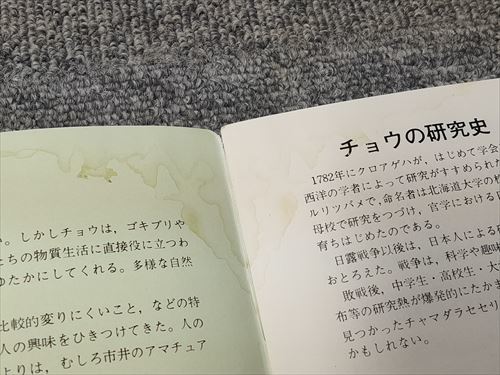 チョウの研究史
1782年にクロアゲハが，はじめて学会
西洋の学者によって研究がすすめられた
ルリツバメで，命名者は北海道大学の松
母校で研究をつづけ，官学における
育ちはじめたのである。
日露戦争以後は，日本人による研
おとろえた。戦争は，科学や趣味
敗戦後，中学生・高校生・大
布等の研究熱が爆発的にたかま
見つかったチャマダラセセリ
かもしれない。
。しかしチョウは，ゴキブリや
ちの物質生活に直接役に立つわ
ゆたかにしてくれる。多様な自然
比較的変りにくいこと，などの特
人の興味をひきつけてきた。人の
よりは，むしろ市井のアマチュア